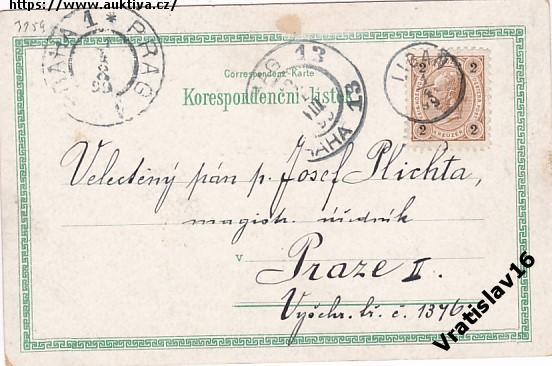 https://www.auktiva.cz/
3159
PRAHA 1 * PRAG
PRAG 13
PRAHA 13
LIBÁŇ
2 2
2 KREUZER 2
Correspondenz-Karte
Korespondenční lístek
Velectěný pán p. Josef Plichta,
magistr. úředník
v Praze II.
Vyšehr. tř. č. 1376
Vratislav16